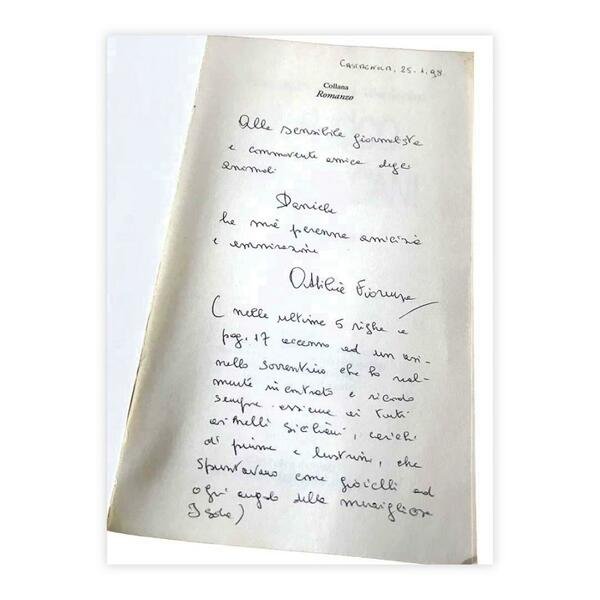 CASTAGNOLA, 25.1.98.
Collana
Romanzo
Alla sensibile giornalista
e commovente amica degli
animali
Daniela
la mia perenne amicizia
e ammirazione
Ottilia
( nelle ultime 5 righe a
pag. 17 accenno ad un asi-
nello sorrentino che ho real-
mente incontrato e ricordo
sempre assieme ai tuoi
asinelli siciliani, carichi
di piume e lustrini, che
spuntavano come gioielli ad
ogni angolo della meravigliosa
Isola)